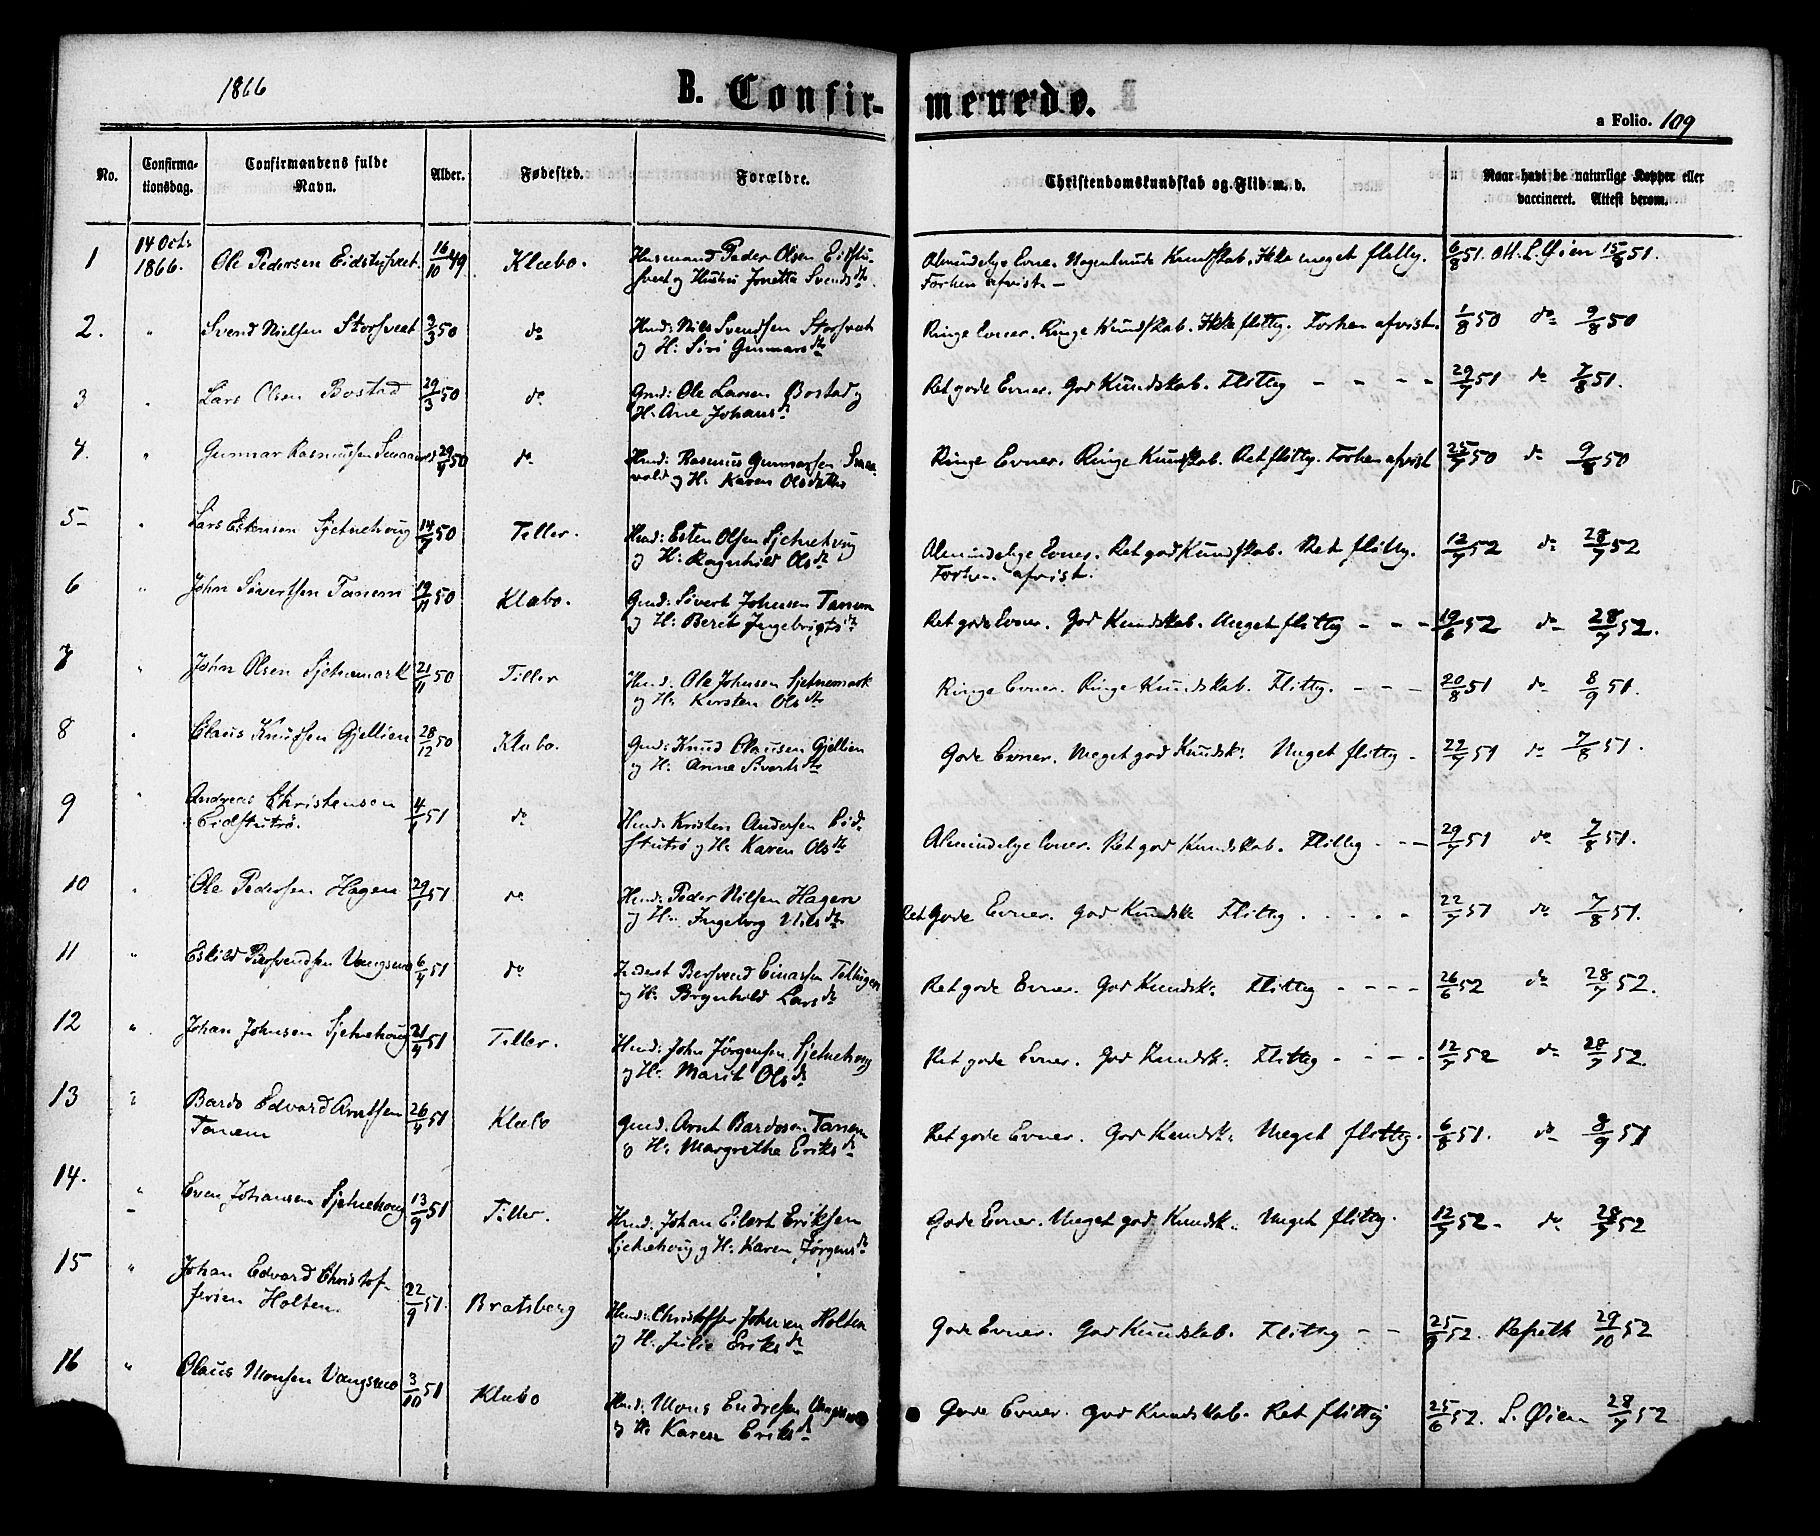 1866
B. Confir-
menede.
a Folio. 109
No.
Confirma-
tionsdag.
Confirmandens fulde
Navn.
Alder.
Fødested.
Forældre.
Christendomskundskab og Flid m. v.
Naar havt de naturlige Kopper eller
vaccineret. Attest derom.
1 14 Oct: 1866. Ole Pedersen 16/10 49 Klæbo. Husmand Peder Olsen
og Hustru Svendsdtr. Almindelige Evner. Kundskab. Ikke meget flittig. 6/8 51. L. Øien 15/8 51.
Forhen afvist. –
2. " Svend Nielsen Storsveet 3/3 50 do Hmd: Nils Svendsen Storsveet
og H: Siri Gunnarsdtr Ringe Evner. Ringe Kundskab. Ikke flittig. Forhen afvist. 1/8 50 do 9/8 50
3 " Lars Olsen Bostad 29/3 50 do Gmd: Ole Larsen Bostad og
H: Ane Johansdr Ret gode Evner. God Kundskab. Flittig – – – – 29/7 51 do 7/8 51.
4. " Gunnar Rasmussen 50 do Hmd: Rasmus Gunnarsen
og H: Karen Olsdatter Ringe Evner. Ringe Kundskab. Ret flittig. Forhen afvist 25/7 50 do 9/8 50
5 " Lars Estensen Sjetnehoug 14/7 50 Tiller. Hmd: Esten Olsen Sjetnehoug
og H: Ragnhild Olsdtr Almindelige Evner. Ret god Kundskab. Ret flittig. 12/7 52 do 28/7 52
Forhen afvist.
6 " John Sivertsen Tanem 19/11 50 Klæbo. Gmd: Sivert Johnsen Tanem
og H: Berit Ingebrigtsdtr Ret gode Evner. God Kundskab. Meget flittig – – – 19/6 52 do 28/7 52.
7 " John Olsen Sjetnemark 21/11 50 Tiller Hmd: Ole Johnsen Sjetnemark
og H: Kirsten Olsdtr Ringe Evner. Ringe Kundskab. Flittig. – – – 20/8 51 do 8/9 51.
8 " Claus Knudsen Gjellien 28/12 50 Klæbo. Gmd: Knud Clausen Gjellien
og H: Anne Sivertsdtr Gode Evner. Meget god Kundsk: Meget flittig – 22/7 51 do 7/8 51.
9 " Andreas Christensen
Eidstutrø. 4/1 51 do Hmd: Kristen Andersen Eid-
stutrø og H: Karen Olsdtr Almindelige Evner. Ret god Kundskab. Flittig – – – 29/7 51 do 7/8 51.
10 " Ole Pedersen Hagen 29/1 51 do Hmd: Peder Nilsen Hagen
og H: Ingeborg Nilsdtr Ret gode Evner. God Kundsk: Flittig . . . . . 22/7 51 do 7/8 51.
11 " Eskild Bersvendsen Vangsmo 6/4 51 do Inderst Bersvend Einarsen
og H: Brynhild Larsdr Ret gode Evner. God Kundsk: Flittig – – – – 26/6 52 do 28/7 52.
12 " Johan Johnsen Sjetnehoug 21/4 51 Tiller. Hmd: John Jørgensen Sjetnehoug
og H: Marit Olsdr Ret gode Evner. God Kundsk: Flittig – – – – 12/7 52 do 28/7 52.
13 " Bardo Edvard Arntsen
Tanem 26/4 51 Klæbo Gmd: Arnt Bardosen Tanem
og H: Margrethe Eriksdr Ret gode Evner. God Kundsk: Meget flittig. 6/8 51. do 8/9 51
14. " Even Johansen Sjetnehoug 13/9 51 Tiller. Hmd: Johan Eilert Eriksen
Sjetnehoug og H: Karen Jørgensdr Gode Evner. Meget god Kundsk: Meget flittig. 12/7 52 – do 28/7 52
15 " Johan Edvard Christof-
fersen Holten. 22/9 51. Bratsberg Hmd: Christoffer Johnsen Holten
og H: Julie Eriksdr Gode Evner. God Kundskab. Flittig – – 52. 29/10 52
16 " Olaus Monsen Vangsmo 3/10 51 Klæbo Hmd: Mons Endresen
og H: Karen Eriksdr Gode Evner. God Kundskab. Ret flittig 25/6 52. L. Øien 28/7 52